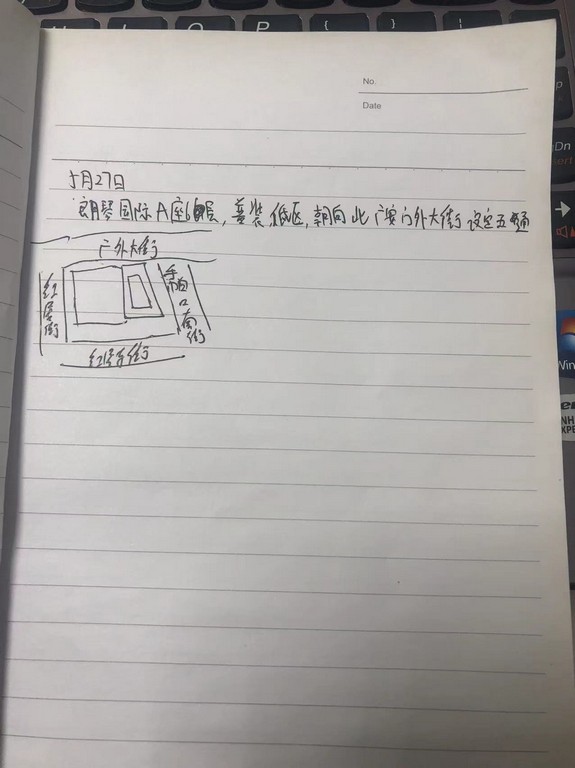 No.
Date
5月27日
朗琴国际A座6层,普装低区,朝向北 广安门外大街 设定五通
广外大街
红居街
手帕口南街
红居南街